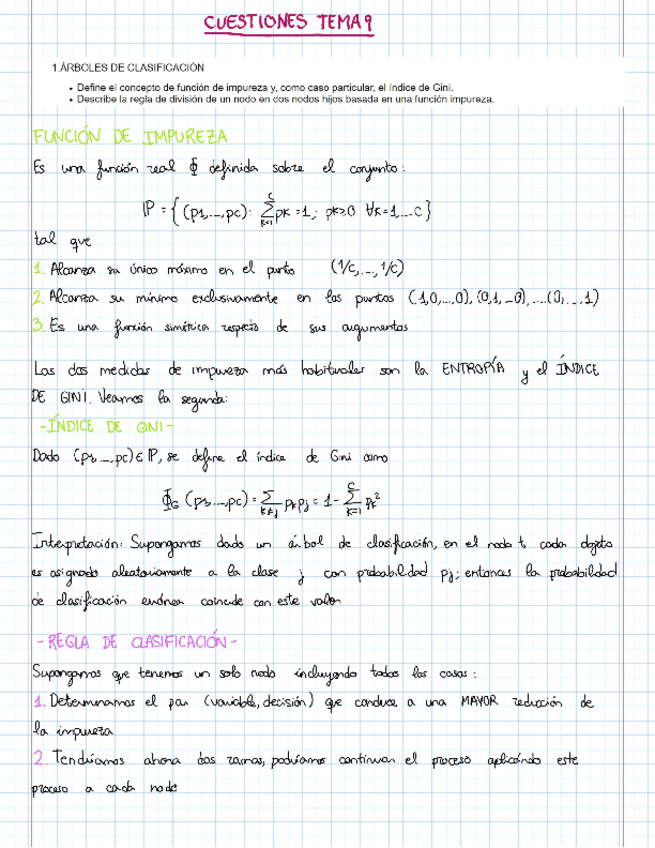 CUESTIONES TEMA 9
1.ÁRBOLES DE CLASIFICACIÓN
• Define el concepto de función de impureza y, como caso particular, el índice de Gini.
• Describe la regla de división de un nodo en dos nodos hijos basada en una función impureza.
FUNCIÓN DE IMPUREZA
Es una función real Φ definida sobre el conjunto:
IP = { (p1,...,pc): ∑_{k=1}^{c} pk = 1; pk≥0 ∀k=1...c }
tal que
1. Alcanza su único máximo en el punto (1/c,...,1/c)
2. Alcanza su mínimo exclusivamente en los puntos (1,0,...,0), (0,1,...0),...,(0,...,1)
3. Es una función simétrica respecto de sus argumentos
Las dos medidas de impureza más habituales son la ENTROPÍA y el ÍNDICE
DE GINI. Veamos la segunda:
-ÍNDICE DE GINI-
Dado (p1,...,pc) ∈ IP, se define el índice de Gini como
ΦG (p1,...,pc) = ∑_{k≠j} pkpj = 1 - ∑_{k=1}^{c} pk²
Interpretación: Supongamos dado un árbol de clasificación, en el nodo t, cada objeto
es asignado aleatoriamente a la clase j con probabilidad pj; entonces la probabilidad
de clasificación errónea coincide con este valor
- REGLA DE CLASIFICACIÓN -
Supongamos que tenemos un solo nodo incluyendo todos los casos:
1. Determinamos el par (variable, decisión) que conduce a una MAYOR reducción de
la impureza
2. Tendríamos ahora dos ramas, podríamos continuar el proceso aplicando este
proceso a cada node